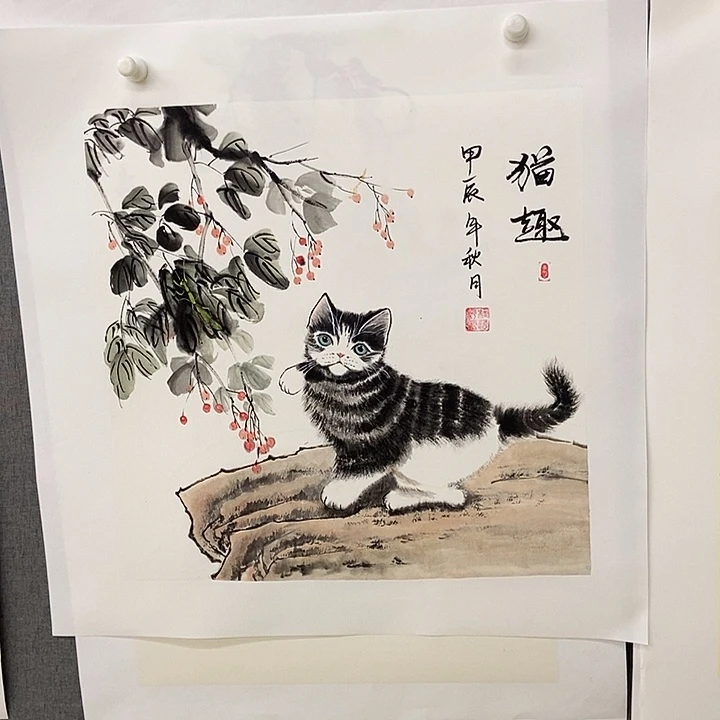 猫趣
甲辰年秋月